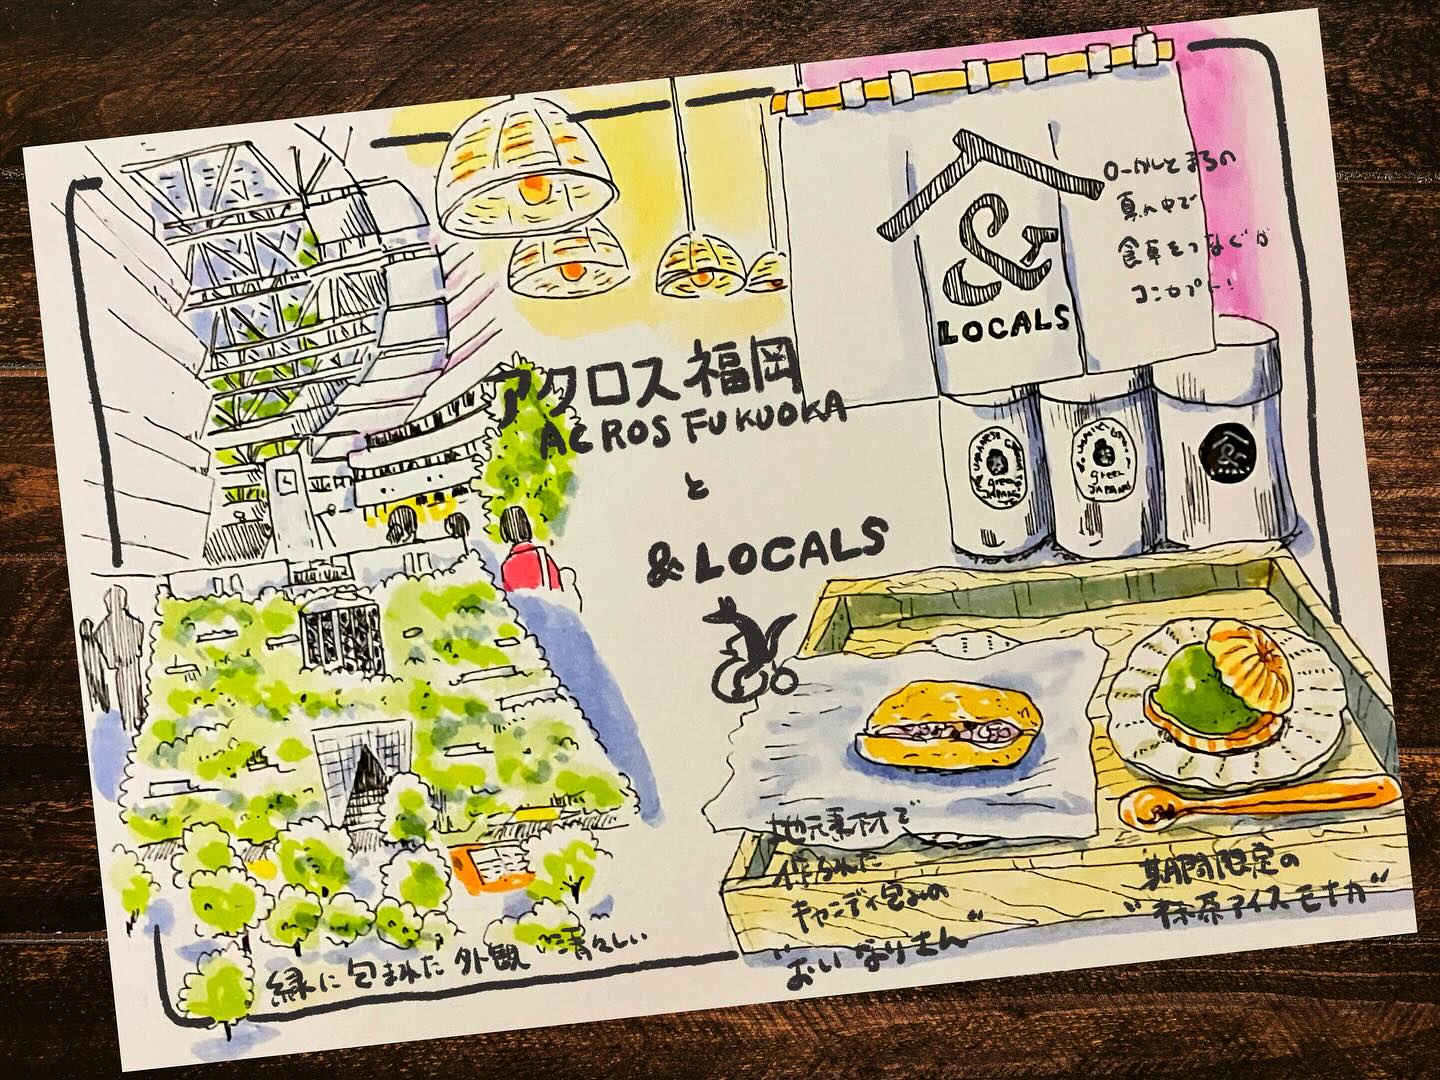 アクロス福岡
ACROS FUKUOKA
と
& LOCALS
&
LOCALS
ローカルとまちの
真ん中で
食卓をつなぐが
コンセプト!
green
JAPAN
green
JAPAN
&
緑に包まれた外観 清々しい
地元素材で
作られた
キャンディ包みの
"おいなりさん"
期間限定の
"抹茶アイスモナカ"